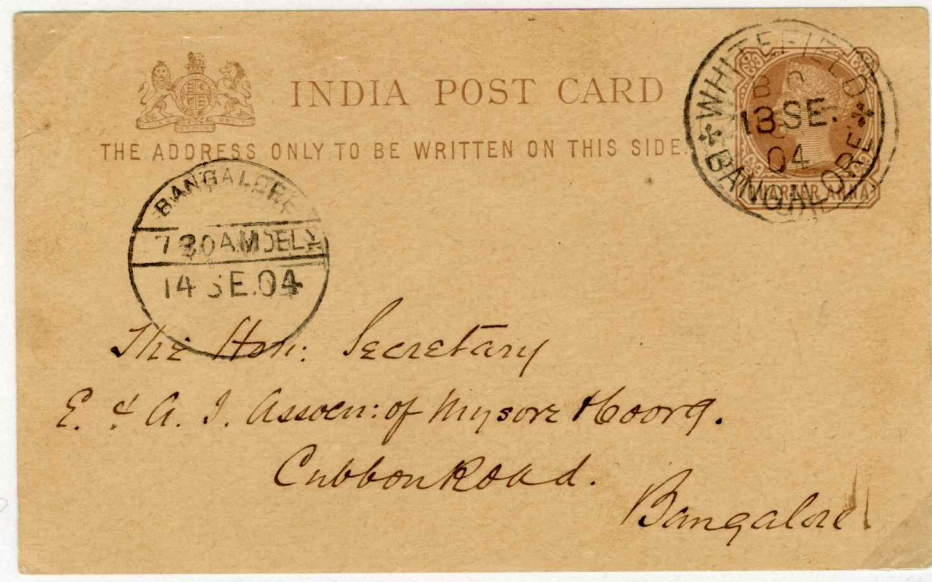 INDIA POST CARD
THE ADDRESS ONLY TO BE WRITTEN ON THIS SIDE.
WHITEFIELD
B.O
13 SE.
04
BANGALORE
QUARTER ANNA
BANGALORE
7 30 AM DELY
14 SE.04
The Hon: Secretary
E. & A. I. Assocn: of Mysore & Coorg.
Cubbon Road.
Bangalore